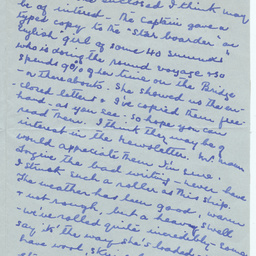 The enclosed I think may
be of interest - The Captain gave a
typed copy to the "Star boarder" a
stylish girl of some 40 summers
who is doing the round voyage & so
spends 90% of her time on the Bridge
or thereabouts. She showed us the en-
-closed letter & I've copied them free-
-hand - as you see. So hope you can
read them. I think they may be of
interest in the Newsletter. Mr.
would appreciate them I'm sure.
Forgive the bad writing - never have
I struck such a roller as this ship.
The weather has been good, warm
& not rough, but a heavy swell
- we've rolled quite incredibly - some
say it's the way she's loaded
have wool,